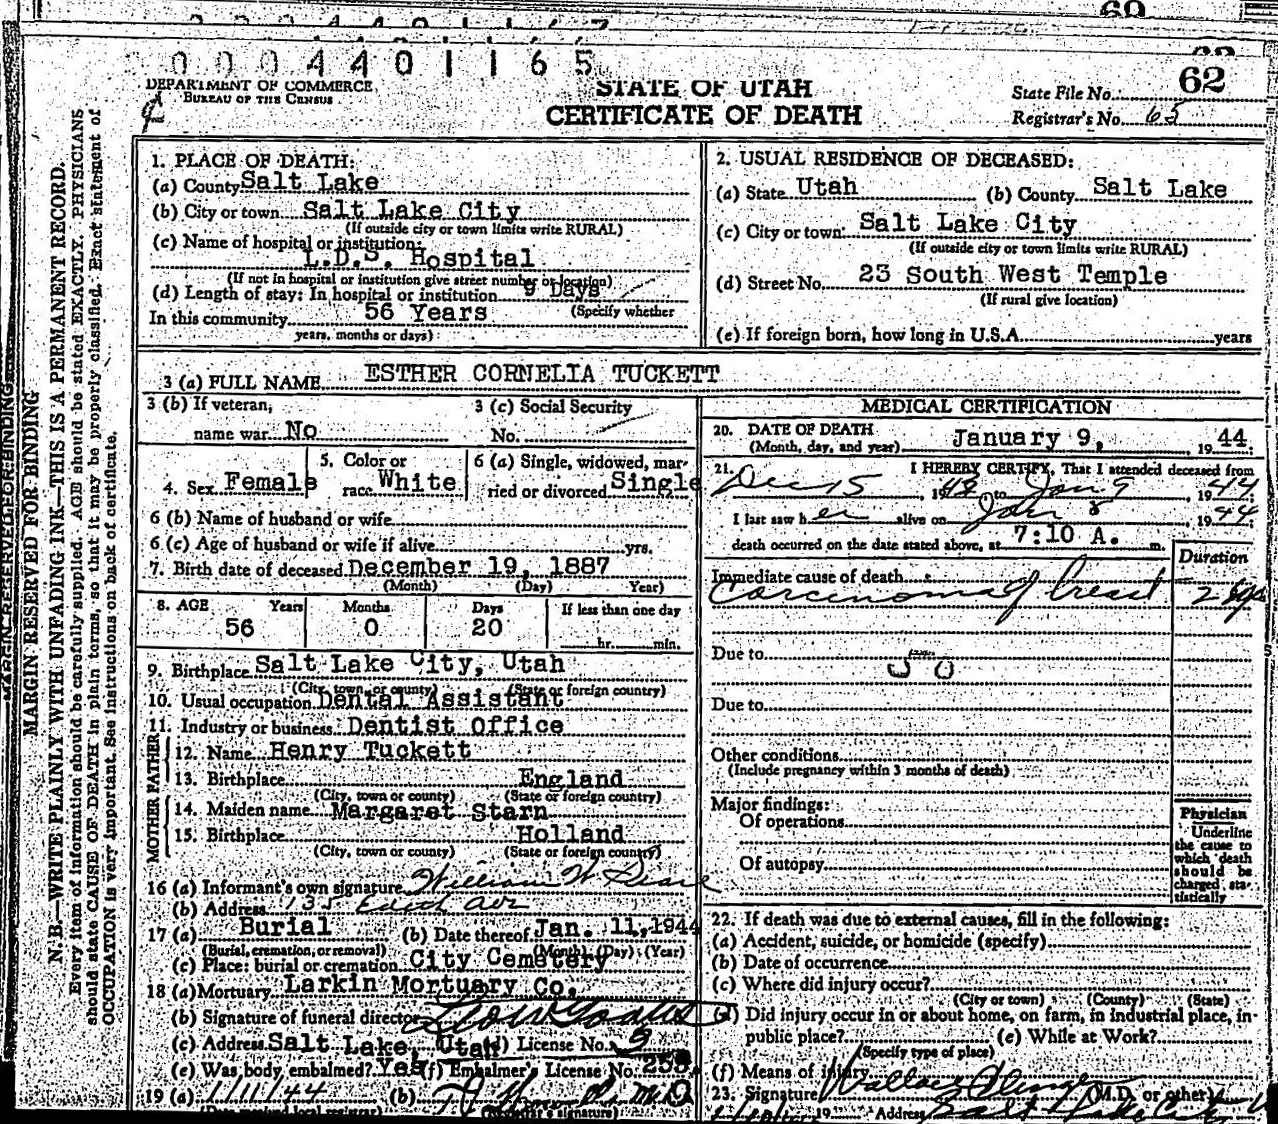 69
0 0 0 4 4 0 1 1 6 5
62
DEPARTMENT OF COMMERCE
BUREAU OF THE CENSUS
STATE OF UTAH
CERTIFICATE OF DEATH
State File No.
Registrar's No. 65
MARGIN RESERVED FOR BINDING
N. B.—WRITE PLAINLY WITH UNFADING INK—THIS IS A PERMANENT RECORD.
Every item of information should be carefully supplied. AGE should be stated EXACTLY. PHYSICIANS
should state CAUSE OF DEATH in plain terms, so that it may be properly classified. Exact statement of
OCCUPATION is very important. See instructions on back of certificate.
1. PLACE OF DEATH:
(a) County Salt Lake
(b) City or town Salt Lake City
(If outside city or town limits write RURAL)
(c) Name of hospital or institution:
L.D.S. Hospital
(If not in hospital or institution give street number or location)
(d) Length of stay: In hospital or institution 9 Days
In this community 56 Years (Specify whether
years, months or days)
2. USUAL RESIDENCE OF DECEASED:
(a) State Utah (b) County Salt Lake
(c) City or town: Salt Lake City
(If outside city or town limits write RURAL)
(d) Street No. 23 South West Temple
(If rural give location)
(e) If foreign born, how long in U.S.A. years
3 (a) FULL NAME ESTHER CORNELIA TUCKETT
3 (b) If veteran, name war No
3 (c) Social Security No.
4. Sex Female
5. Color or race White
6 (a) Single, widowed, married or divorced Single
6 (b) Name of husband or wife
6 (c) Age of husband or wife if alive yrs.
7. Birth date of deceased December 19, 1887
(Month) (Day) Year)
8. AGE Years Months Days If less than one day
56 0 20 hr. min.
9. Birthplace Salt Lake City, Utah
(City, town or county) (State or foreign country)
10. Usual occupation Dental Assistant
11. Industry or business Dentist Office
FATHER
12. Name Henry Tuckett
13. Birthplace England
(City, town or county) (State or foreign country)
MOTHER
14. Maiden name Margaret Starn
15. Birthplace Holland
(City, town or county) (State or foreign country)
16 (a) Informant's own signature William W
(b) Address 135 Edith Ave
17 (a) Burial (b) Date thereof Jan. 11, 1944
(Burial, cremation, or removal) (Month) (Day) (Year)
(c) Place: burial or cremation City Cemetery
18 (a) Mortuary Larkin Mortuary Co.
(b) Signature of funeral director
(c) Address Salt Lake, Utah (d) License No. 9
(e) Was body embalmed? Yes (f) Embalmer's License No. 258
19 (a) 1/11/44 (b)
MEDICAL CERTIFICATION
20. DATE OF DEATH
(Month, day, and year) January 9, 1944
21. I HEREBY CERTIFY, That I attended deceased from
Dec 15, 1943 to Jan 9, 1944
I last saw her alive on Jan 8, 1944
death occurred on the date stated above, at 7:10 A. m.
Duration
Immediate cause of death
Carcinoma of breast 2
Due to
50
Due to
Other conditions
(Include pregnancy within 3 months of death)
Major findings:
Of operations
Of autopsy
Physician
Underline
the cause to
which death
should be
charged sta-
tistically
22. If death was due to external causes, fill in the following:
(a) Accident, suicide, or homicide (specify)
(b) Date of occurrence
(c) Where did injury occur?
(City or town) (County) (State)
(d) Did injury occur in or about home, on farm, in industrial place, in
public place? (e) While at Work?
(Specify type of place)
(f) Means of injury
23. Signature Wallace (M.D. or other)
19 Address Salt Lake City